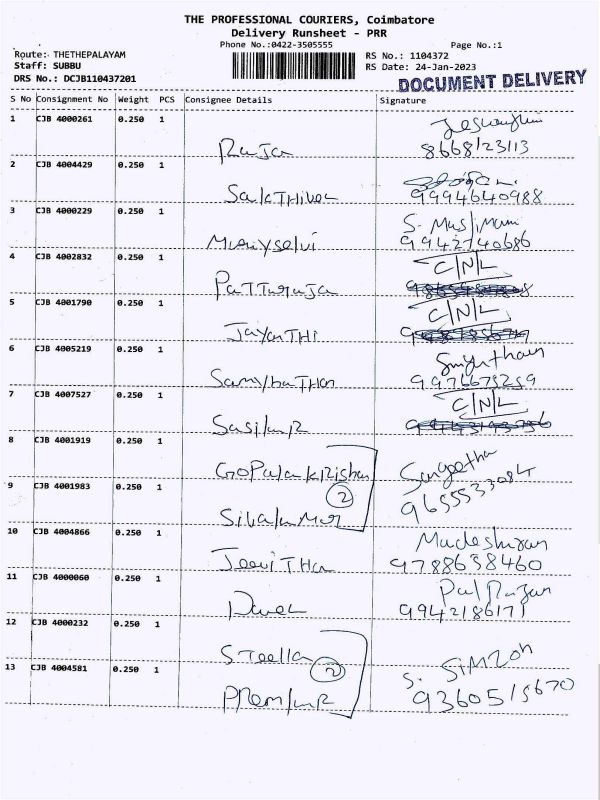 THE PROFESSIONAL COURIERS, Coimbatore
Delivery Runsheet - PRR
Phone No.:0422-3505555
Page No.:1
Route: THETHEPALAYAM
RS No.: 1104372
Staff: SUBBU
RS Date: 24-Jan-2023
DRS No.: DCJB110437201
DOCUMENT DELIVERY
S No Consignment No Weight PCS Consignee Details Signature
1 CJB 4000261 0.250 1
Raja 8668123113
2 CJB 4004429 0.250 1
SakTHivel 9994640988
3 CJB 4000229 0.250 1 S. Muslimani
9942740686
4 CJB 4002832 0.250 1 C/N/L
PaTTuraja
5 CJB 4001790 0.250 1 C/N/L
JayanTHi
6 CJB 4005219 0.250 1
9976675259
7 CJB 4007527 0.250 1 C/N/L
8 CJB 4001919 0.250 1
GoPalakRishan Sangeetha
9 CJB 4001983 0.250 1 2 9655533084
SivakuMar
10 CJB 4004866 0.250 1
JeeviTHa 9788638460
11 CJB 4000060 0.250 1
9942186171
12 CJB 4000232 0.250 1
STeella
13 CJB 4004581 0.250 1 2 S.
9360515670